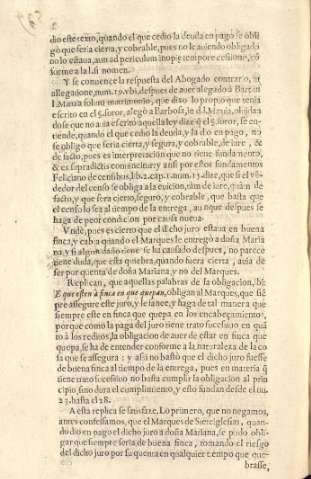 dio este texto, quando el que cedio la deuda en pago se obli
gò que seria cierra, y cobrable, pues no le auiendo obligado
no lo estaua, aun ad periculum inopiæ temporecessionis, cõ
forme a la l. si nomen.
Y se comience la respuesta del Abogado contrario, in
allegatione, num. 19. vbi, despues de auer alegado à Bart. in
l. Mauia soluto matrimonio, que dixo lo propio que tenia
escrito en el §. alegò a Barbosa, in d. l. Mæuia,
do se que no auia escrito aquella ley diez el §. soror, se en-
tiende, quando el que cedio la deuda, y la dio en pago, no
se obligò que seria cierta, y segura, y cobrable, de iure, &
de facto, pues es interpretacion que no tiene fundamento,
& ex supradictis conuincitur y ansi por estos fundamentos
Feliciano de censibus, lib. 2. cap. 1. num. 13. dize, que si el vẽ-
dedor del censo se obliga a la euicion, tàm de iure, quàm de
facto, y que serà cierto, seguro, y cobrable, que basta que
el censo lo sea al tiempo de la entrega, aunque despues se
haga de peor condicion por causa nueua.
Vndè, pues es cierto que el dicho juro estaua en buena
finca, y cabia quando el Marques le entregò a doña Maria
na, y si algun daño tiene se ha causado despues, no parece
tiene duda, que esta quiebra, quando fuera cierta, auia de
ser por quenta de doña Mariana, y no del Marques.
Replican, que aquellas palabras de la obligacion, ibi:
E que estèn à finca en que quepan, obligan al Marques, que siẽ
pre assegure este juro, y le sanee, y haga de tal manera que
siempre estè en finca que quepa en los encabeçamientos,
porque como la paga del juro tiene trato sucessiuo en quã
to à los reditos, la obligacion de auer de estar en finca que
quepa, se ha de entender conforme à la naturaleza de la co
sa que se assegura: y assi no bastò que el dicho juro fuesse
de buena finca al tiempo de la entrega, pues en materia q̃
tiene trato sucessiuo no basta cumplir la obligacion al prin
cipio, sino dura el cumplimiento, y esto fundan desde el nu.
23. hasta el 28.
A esta replica se satisfaze. Lo primero, que no negamos,
antes confessamos, que el Marques de Sieteiglesias, quan-
do dio en pago el dicho juro à doña Mariana, se pudo obli-
gar que siempre seria de buena finca, tomando el riesgo
del dicho juro por su quenta en qualquier tiempo que que-
brasse,